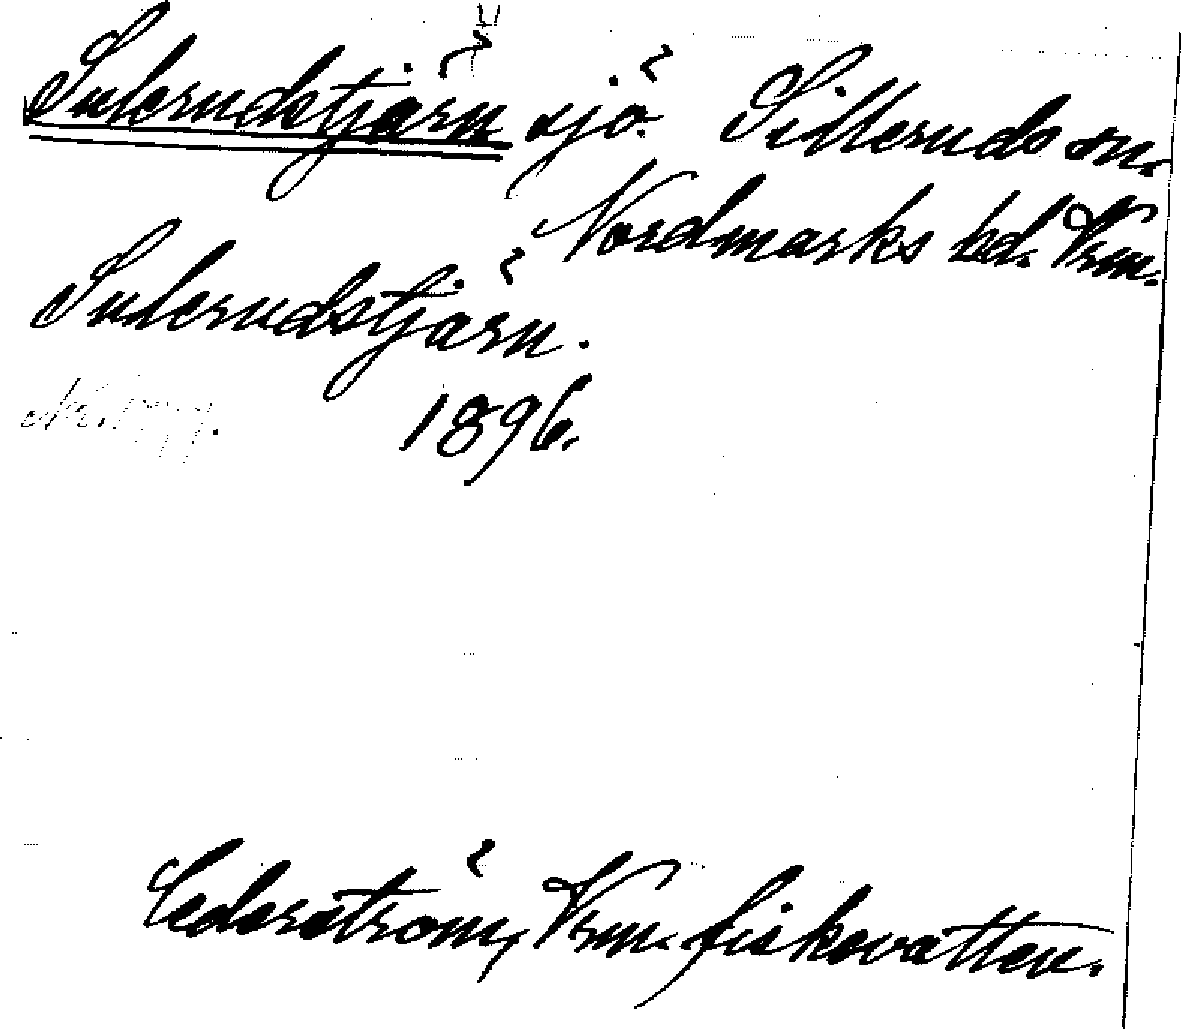 Sulerudstjärn sjö. Silleruds sn.
Nordmarks hd. Vrm.
Sulerudstjärn.
1896.
Cederström, Vrm. fiskevatten.